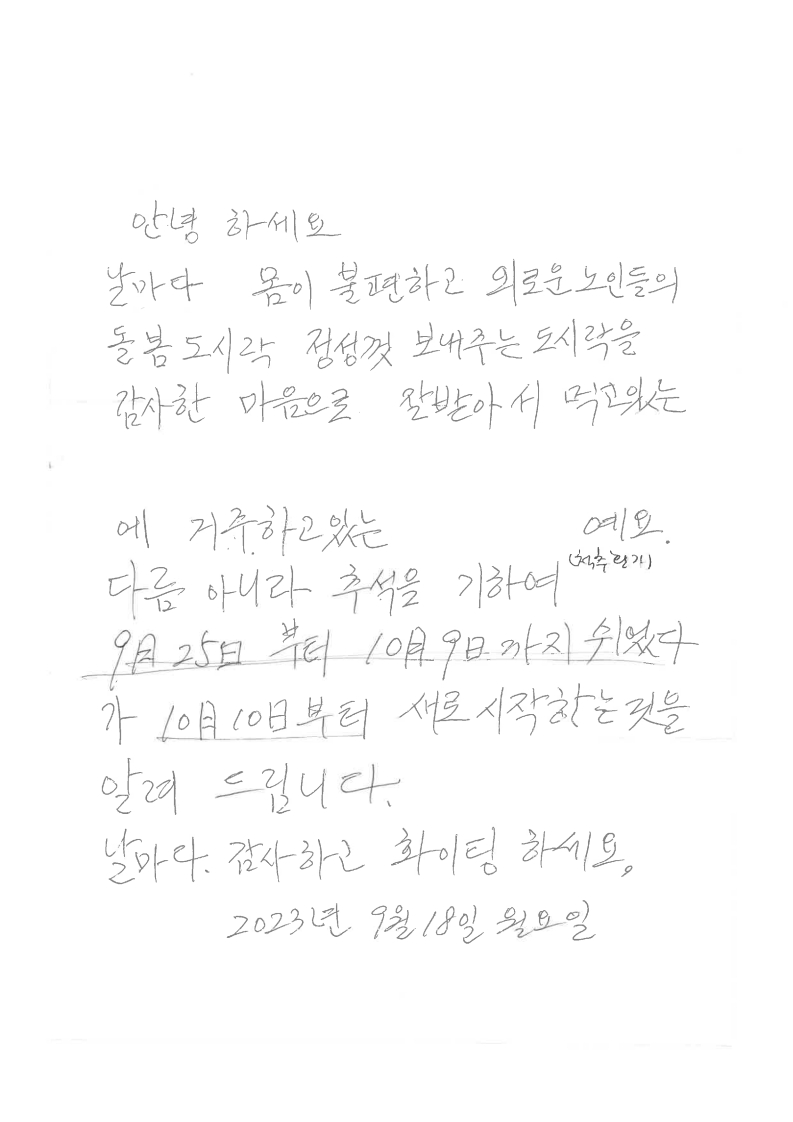 안녕 하세요
날마다 몸이 불편하고 외로운 노인들의
돌봄 도시락 정성껏 보내주는 도시락을
감사한 마음으로 잘받아서 먹고있는
에 거주하고있는 예요.
다름 아니라 추석을 기하여
9月 25日 부터 10月 9日 까지 쉬었다
가 10月 10日 부터 새로 시작하는 것을
알려 드립니다.
날마다. 감사하고 화이팅 하세요,
2023년 9월 18일 월요일